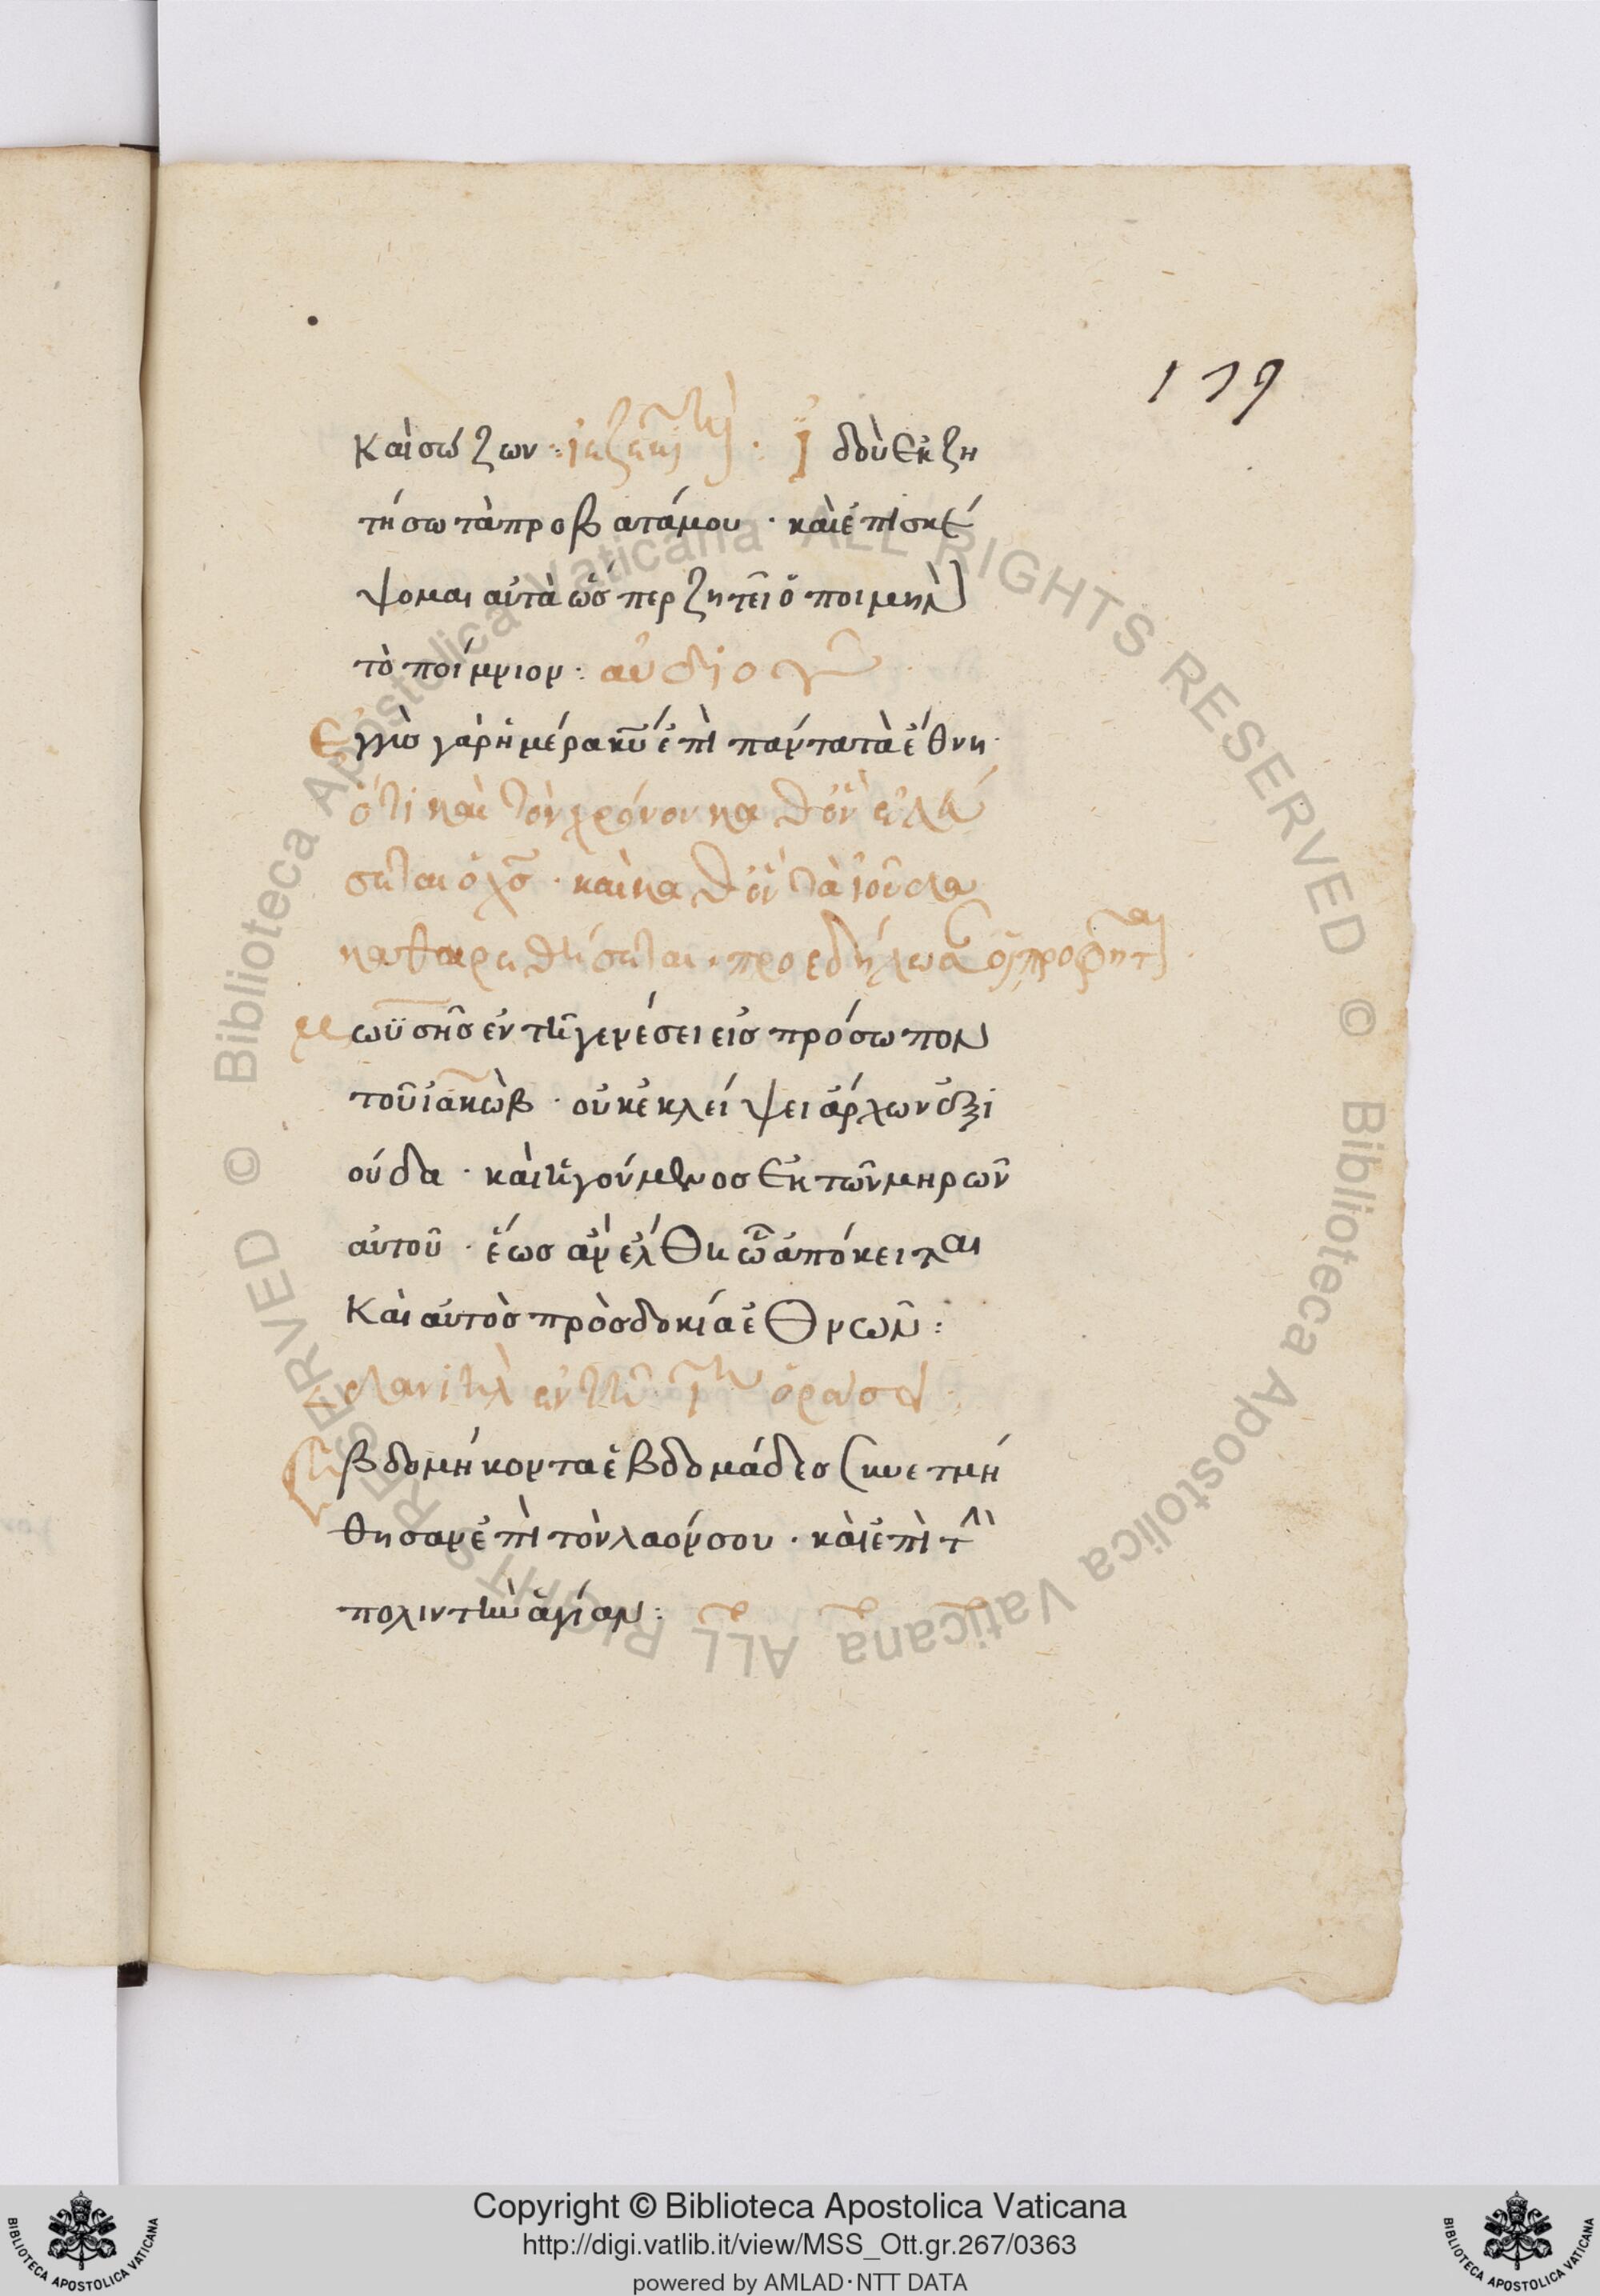 179
Καὶ σώζων : ἰεζεκιὴλ · Ἰδοὺ ἐκζη
τήσω τὰ πρόβατά μου · καὶ ἐπισκέ
ψομαι αὐτὰ ὥσπερ ζητεῖ ὁ ποιμὴν
τὸ ποίμνιον :
Ἐγγὺσ γὰρ ἡμέρα κυ ἐπὶ πάντα τὰ ἔθνη ·
ὅτι καὶ τὸν χρόνον καθ' ὃν ἐλεύ
σεται ὁ χσ · καὶ καθ' ὃν τὰ ἰουδα
καθαιρεθήσεται · προεδήλωσαν οἱ προφῆται ·
Μωϋσῆσ ἐν τῆ γενέσει εἰσ πρόσωπον
τοῦ ἰακὼβ · οὐκ ἐκλείψει ἄρχων ἐξ ἰ
ούδα · καὶ ἡγούμενοσ ἐκ τῶν μηρῶν
αὐτοῦ · ἕωσ ἂν ἔλθη ὧ ἀπόκειται
Καὶ αὐτὸσ προσδοκία ἐθνῶν :
Δανιὴλ ἐν τῆ ι ὁράσει ·
Ἑβδομήκοντα ἑβδομάδεσ συνετμή
θησαν ἐπὶ τὸν λαόν σου · καὶ ἐπὶ τὴν
πόλιν τὴν ἁγίαν :
© Biblioteca Apostolica Vaticana ALL RIGHTS RESERVED © Biblioteca Apostolica Vaticana ALL RIGHTS RESERVED
Copyright © Biblioteca Apostolica Vaticana
http://digi.vatlib.it/view/MSS_Ott.gr.267/0363
powered by AMLAD·NTT DATA
BIBLIOTECA APOSTOLICA VATICANA
BIBLIOTECA APOSTOLICA VATICANA